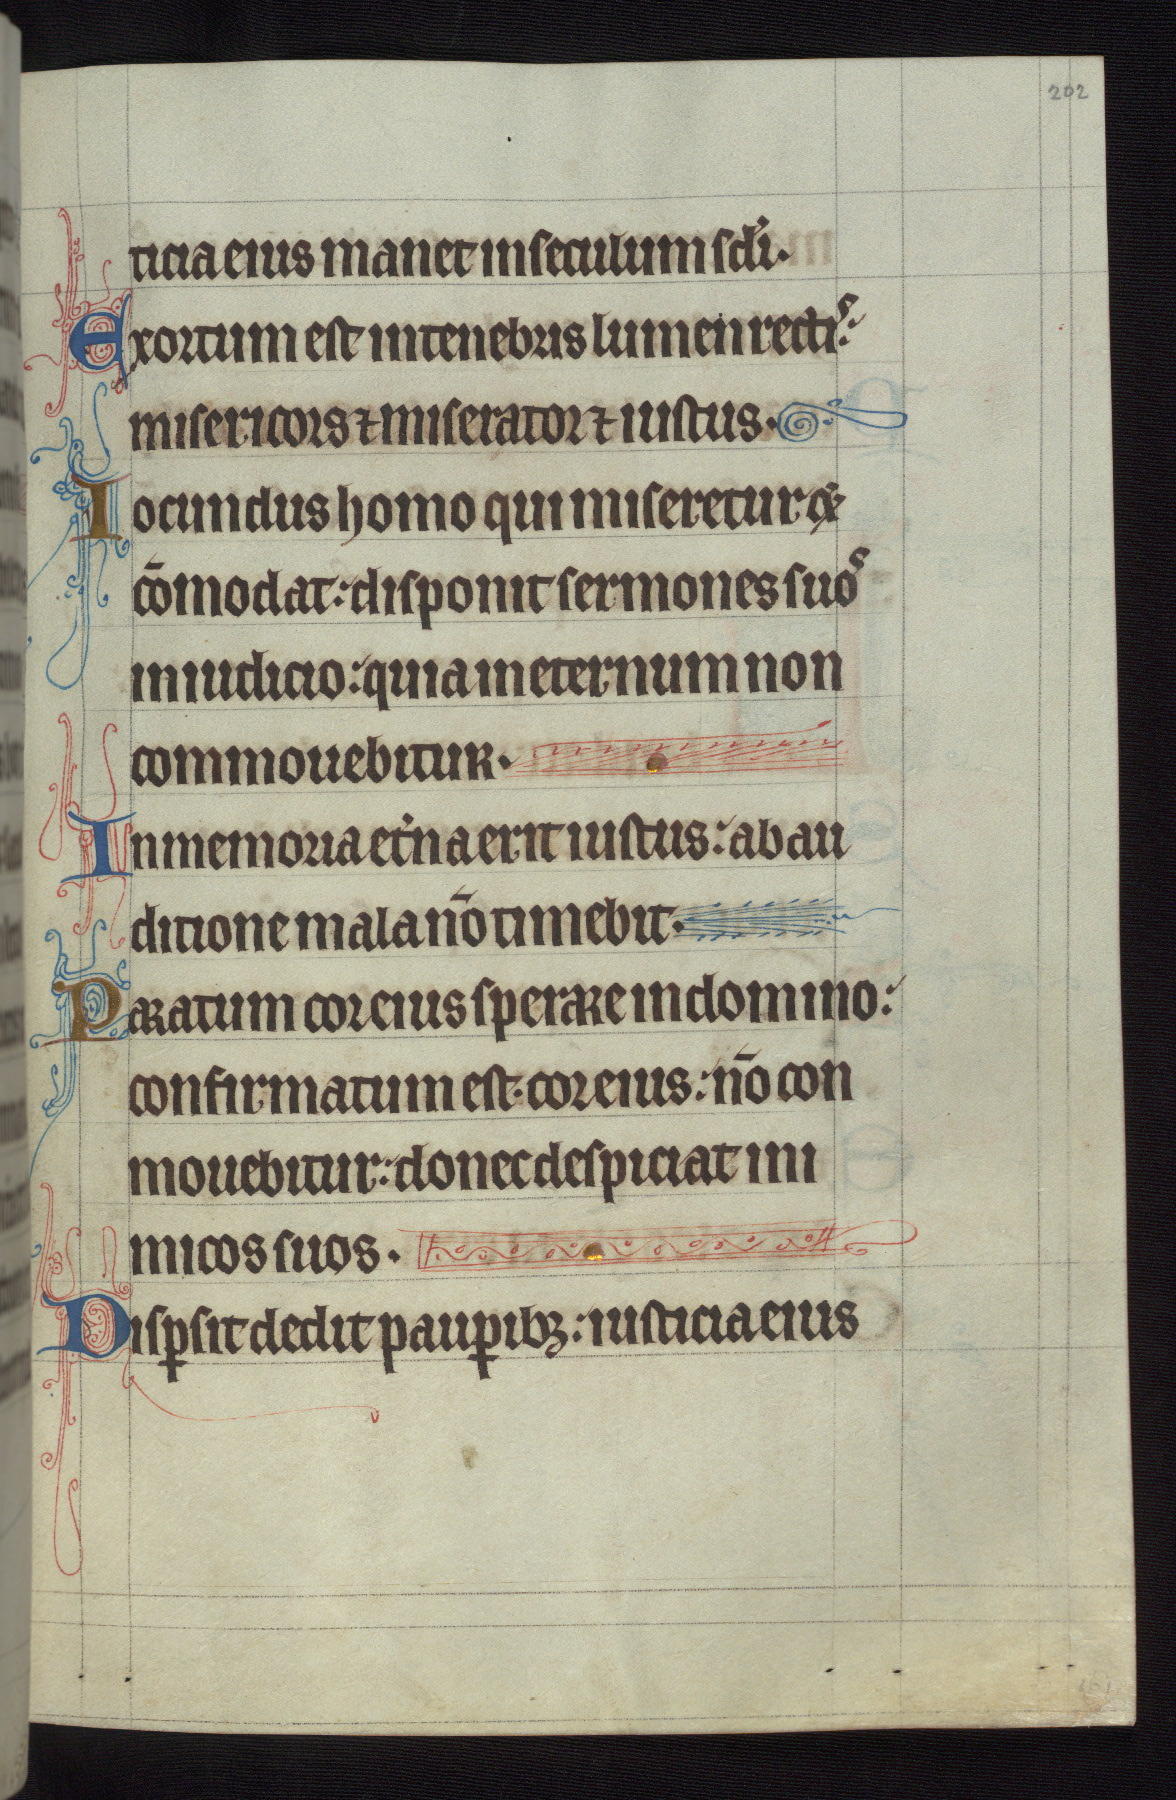 202
ticia eius manet in seculum sc̄li.
Exortum est in tenebris lumen rectis:
misericors ⁊ miserator ⁊ iustus.
Iocundus homo qui miseretur ⁊
cōmodat: disponit sermones suos
in iudicio: quia in eternum non
commouebitur.
In memoria et̉na erit iustus: ab au
ditione mala nō timebit.
Paratum cor eius sperare in domino:
confirmatum est cor eius: nō con
mouebitur: donec despiciat ini
micos suos.
Disꝑsit dedit pauꝑibꝫ: iusticia eius